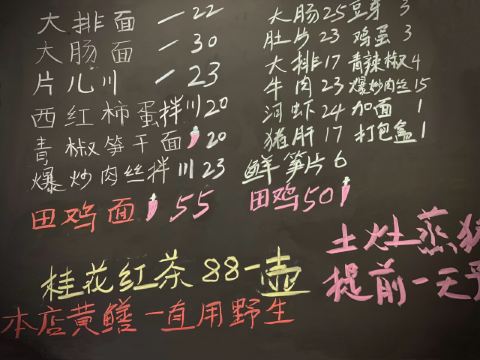 大排面 一 22
大肠面 一 30
片儿川 一 23
西红柿蛋拌川 20
青椒笋干面 20
爆炒肉丝拌川 23
田鸡面 55
大肠 25 豆芽 3
肚片 23 鸡蛋 3
大排 17 青辣椒 4
牛肉 23 爆炒肉丝 15
河虾 24 加面 1
猪肝 17 打包盒 1
鲜笋片 6
田鸡 50
土灶蒸
提前一天
桂花红茶 88一壶
本店黄鳝一直用野生